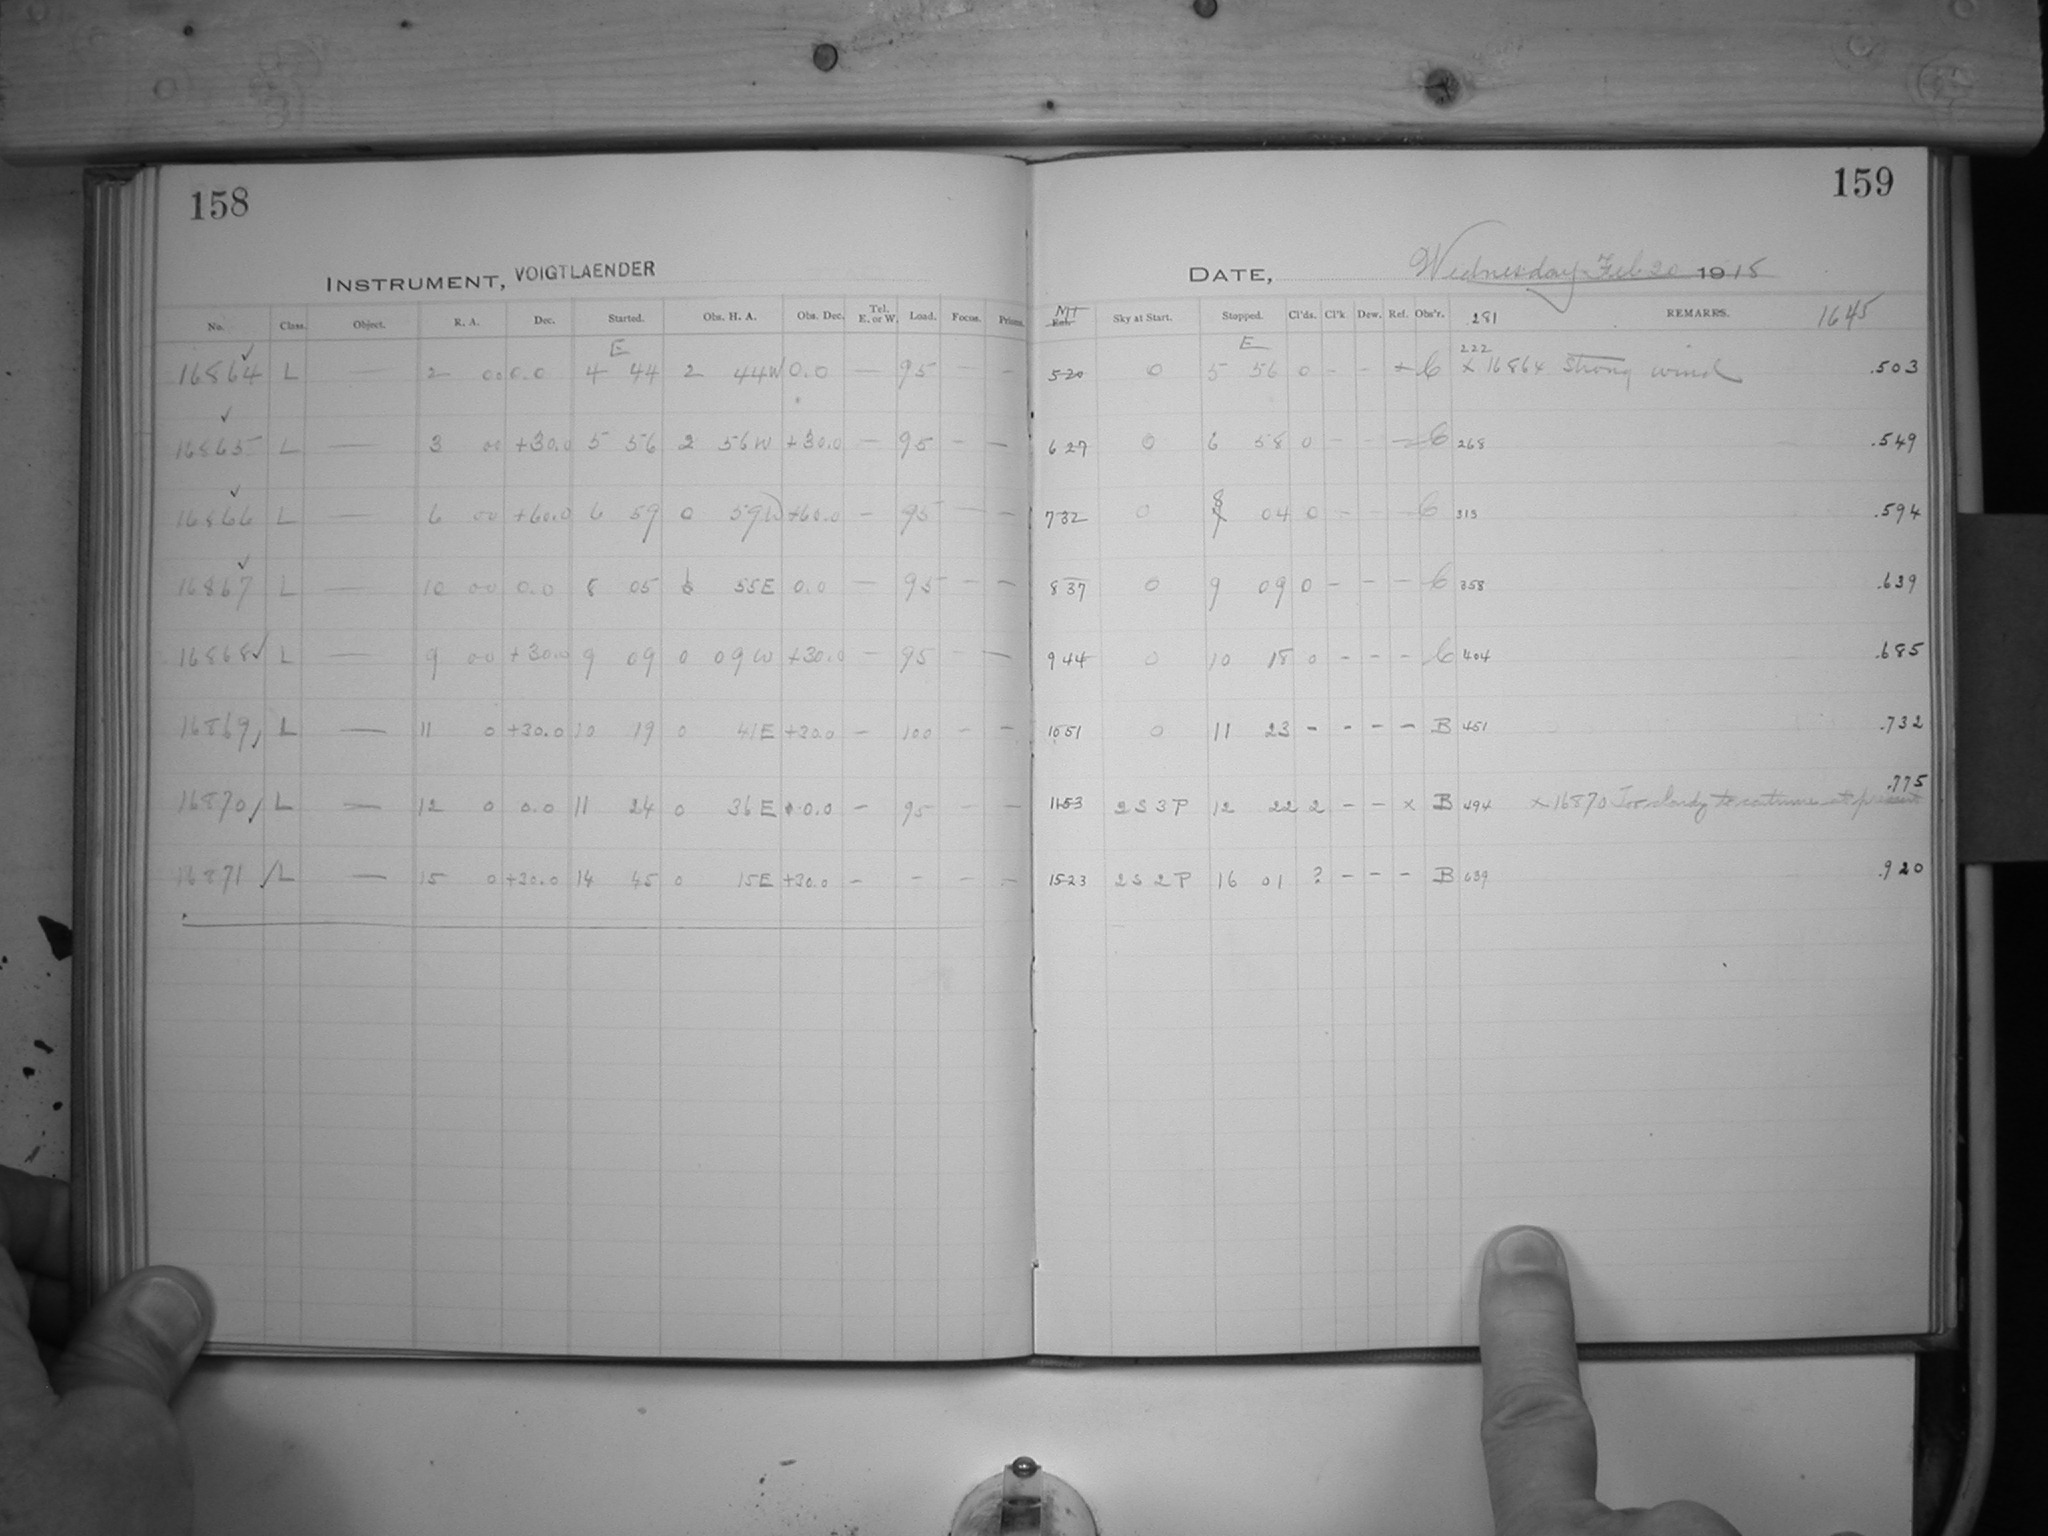 158
INSTRUMENT, VOIGTLAENDER
No. Class. Object. R. A. Dec. Started. Obs. H. A. Obs. Dec. Tel. E. or W. Load. Focus. Prisms.
E
16864 ✓ L — 2 00 0.0 4 44 2 44W 0.0 — 95 — —
16865 ✓ L — 3 00 +30.0 5 56 2 56W +30.0 — 95 — —
16866 ✓ L — 6 00 +60.0 6 59 0 59W +60.0 — 95 — —
16867 ✓ L — 10 00 0.0 8 05 55E 0.0 — 95 — —
16868 ✓ L — 9 00 +30.0 9 09 0 09W +30.0 — 95 — —
16869 L — 11 0 +30.0 10 19 0 41E +30.0 — 100 — —
16870 L — 12 0 0.0 11 24 0 36E 0.0 — 95 — —
16871 L — 15 0 +30.0 14 45 0 15E +30.0 — — — —
159
DATE, Wednesday Feb 20 1918
MT Sky at Start. Stopped. Cl'ds. Cl'k Dew. Ref. Obs'r. 281 REMARKS. 1645
E
5 20 0 5 56 0 - - × C 222 × 16864 Strong wind .503
6 27 0 6 58 0 - - - C 268 .549
7 32 0 8 04 0 - - - C 313 .594
8 37 0 9 09 0 - - - C 358 .639
9 44 0 10 18 0 - - - C 404 .685
10 51 0 11 23 - - - - B 451 .732
11 53 2S3P 12 22 2 - - × B 494 × 16870 Too cloudy to continue at present .775
15 23 2S2P 16 01 ? - - - B 639 .920